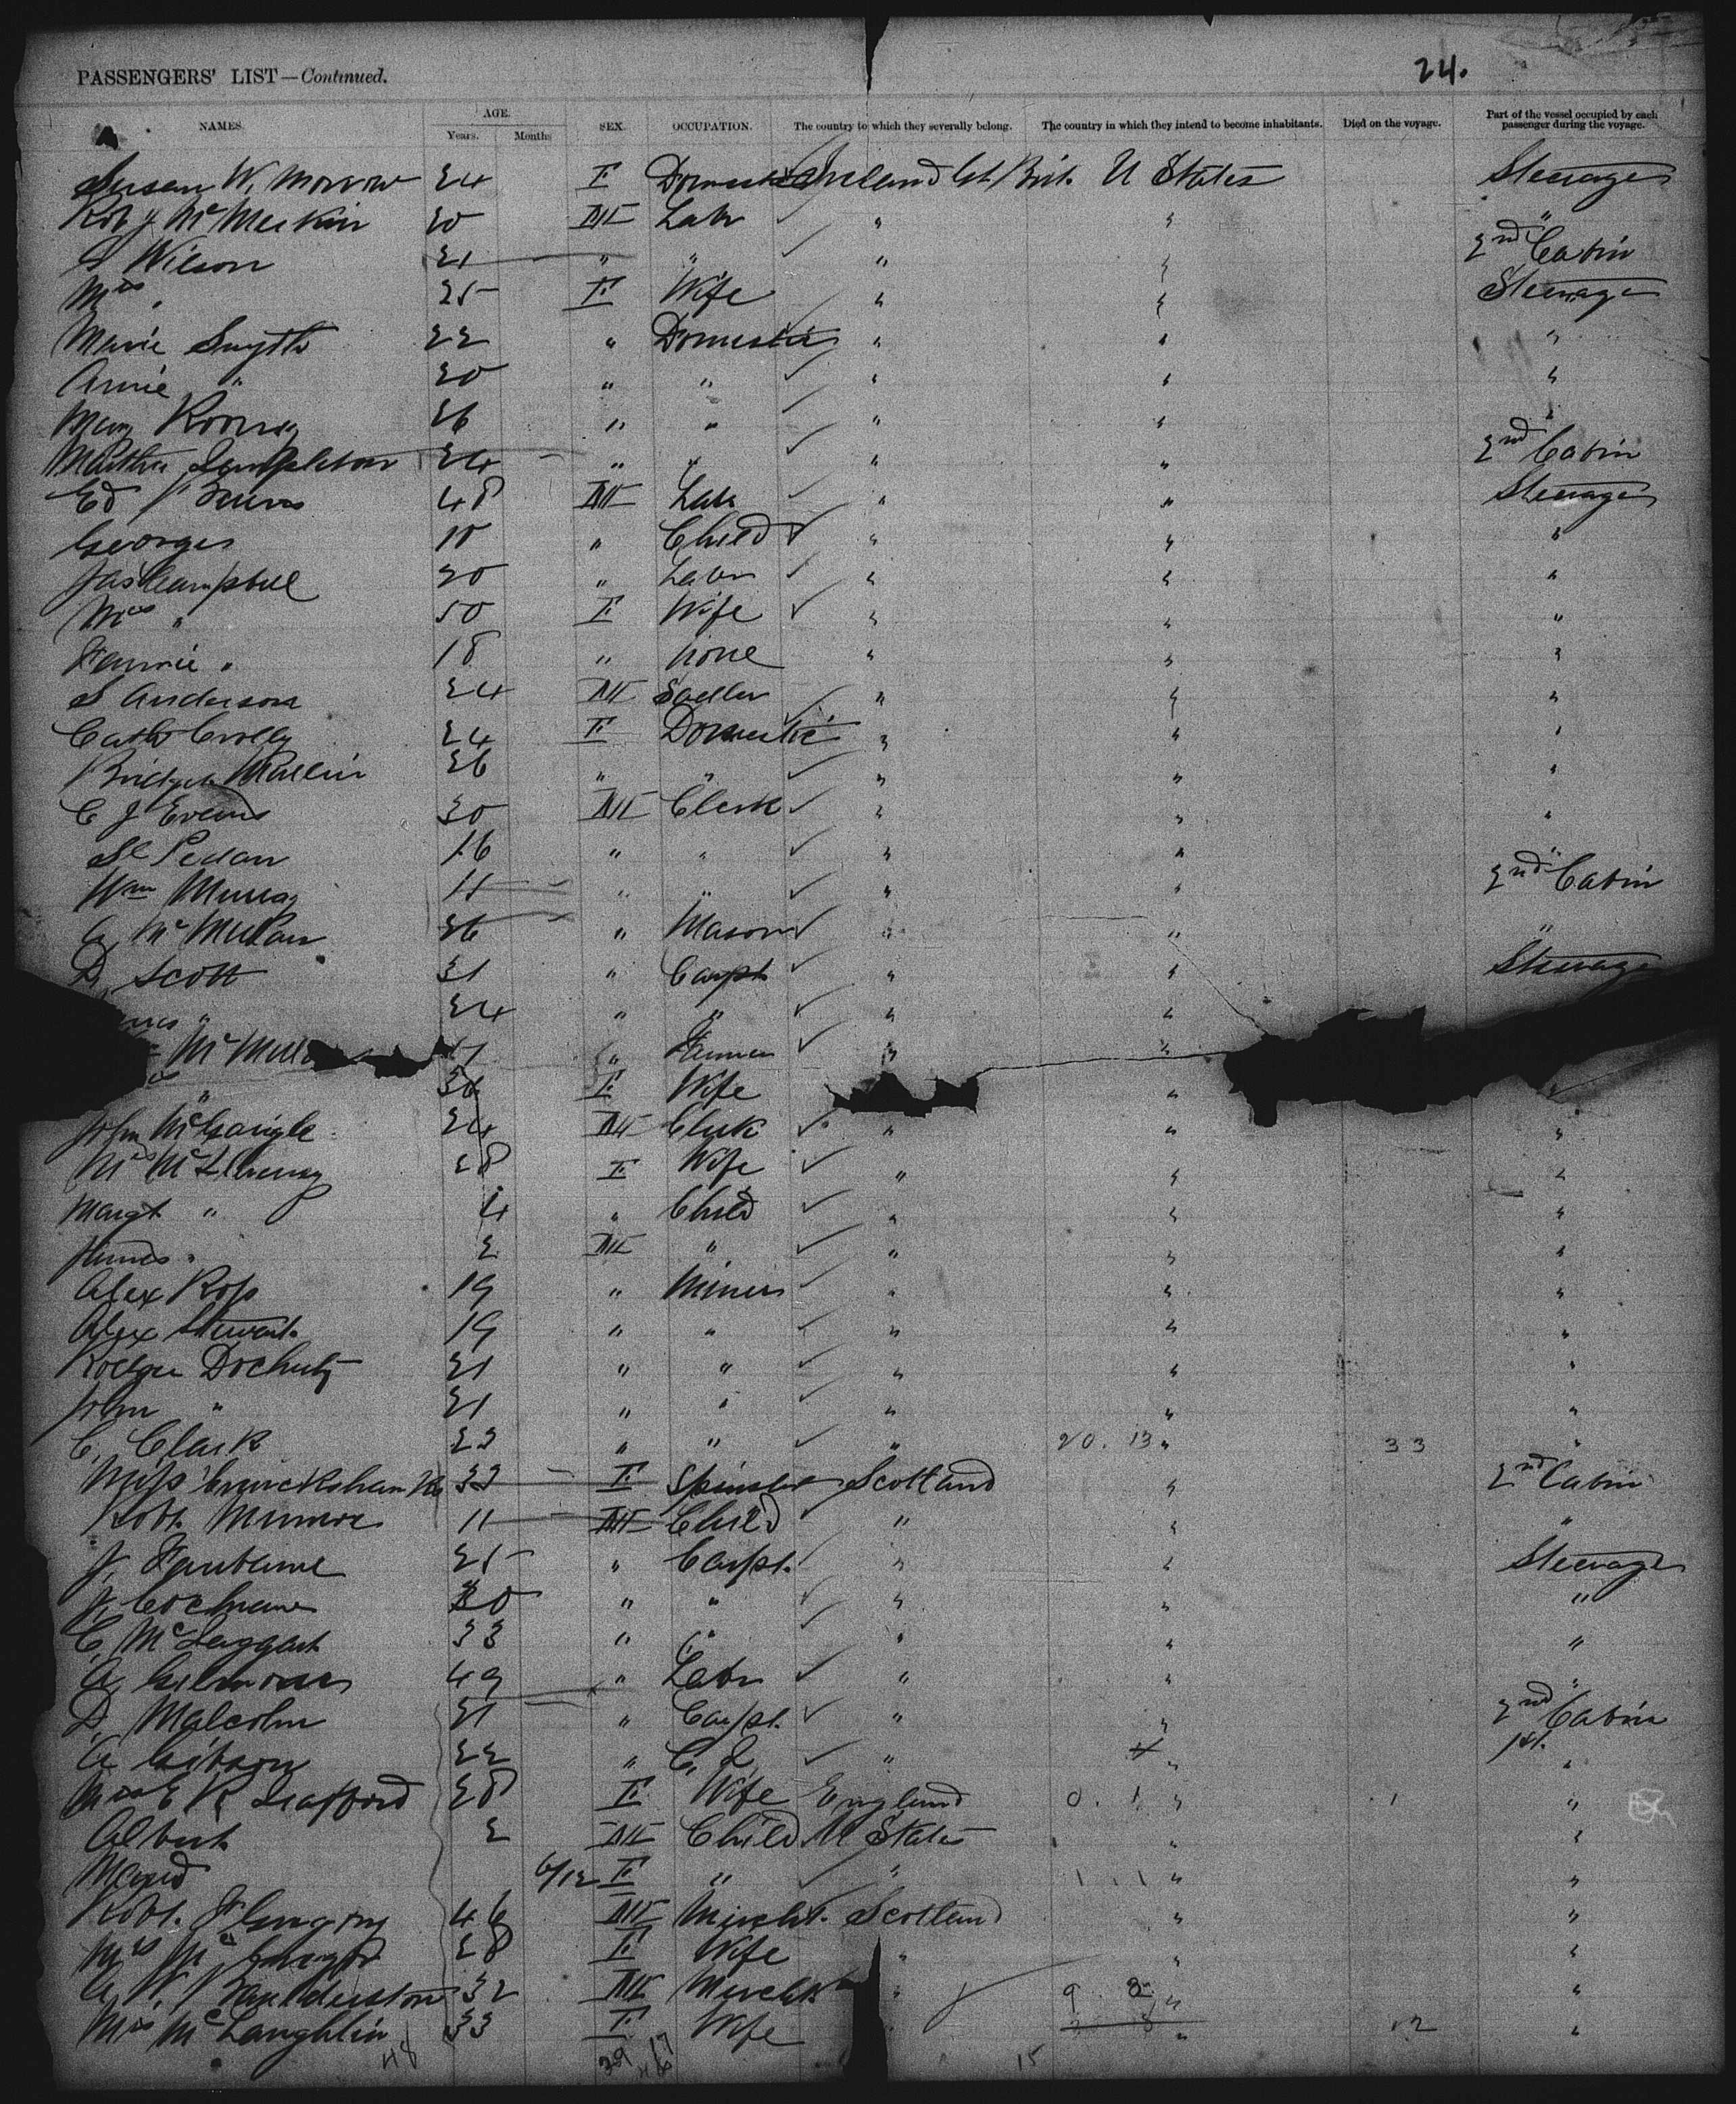 PASSENGERS' LIST—Continued. 24.
NAMES. AGE. Years. Months SEX. OCCUPATION. The country to which they severally belong. The country in which they intend to become inhabitants. Died on the voyage. Part of the vessel occupied by each passenger during the voyage.
Susan W. Morrow 24 F Domestic Ireland Gt Brit. U States Steerage
Robt J McMeekin 20 M Labr " " "
S Wilson 21 " " " " 2nd Cabin
Mrs " 25 F Wife " " Steerage
Marie Smyth 22 " Domestic " " "
Annie " 20 " " " " "
Mary Rooney 26 " " " " "
Martha Templeton 24 " " " " 2nd Cabin
Ed Burns 48 M Labr " " Steerage
George 10 " Child " " "
Jas Campbell 50 " Labr " " "
Mrs " 50 F Wife " " "
Fannie " 18 " None " " "
S Anderson 24 M Sadler " " "
Cath Crolly 24 F Domestic " " "
Bridget Mallin 26 " " " " "
C J Evans 30 M Clerk " " "
Sl Pedan 16 " " " " "
Wm Murray 11 " " " " 2nd Cabin
Mc " Mason " " "
D, Scott 21 " Carpt " " Steerage
" 24 " " " "
McMull " Farmer " "
" 36 F Wife " "
John McGonigle 24 M Clerk " " "
Mrs 28 F Wife " " "
Margt " 4 " Child " " "
James " 2 M " " "
Alex Ross 19 " Miner " " "
Alex Stewart 19 " " " " "
Rodger Docherty 21 " " " " "
John " 21 " " " " "
C. Clark 23 " " " 20. 13 " 33 "
Miss Cruickshank 33 F Spinster Scotland " 2nd Cabin
Robt. Munroe 11 M Child " " "
J. 25 " Carpt. " " Steerage
J. Cochrane 20 " " " " "
C, McTaggart 33 " " " " "
A Gilmour 49 " Labr " " "
D, Malcolm 21 " Carpt. " " 2nd Cabin
A Gibson 22 " " " 1st. "
Mrs E R Trafford 28 F Wife England 0. 1 " 1 "
Albert 2 M Child U States " "
Maud 6/12 F " " 1. 1 " "
Robt. 46 M Mercht. Scotland " "
Mrs 28 F Wife " " "
A W. Balderston 32 M Mercht " 9 " "
Mrs McLaughlin 33 F Wife " 12 "
48 29 15